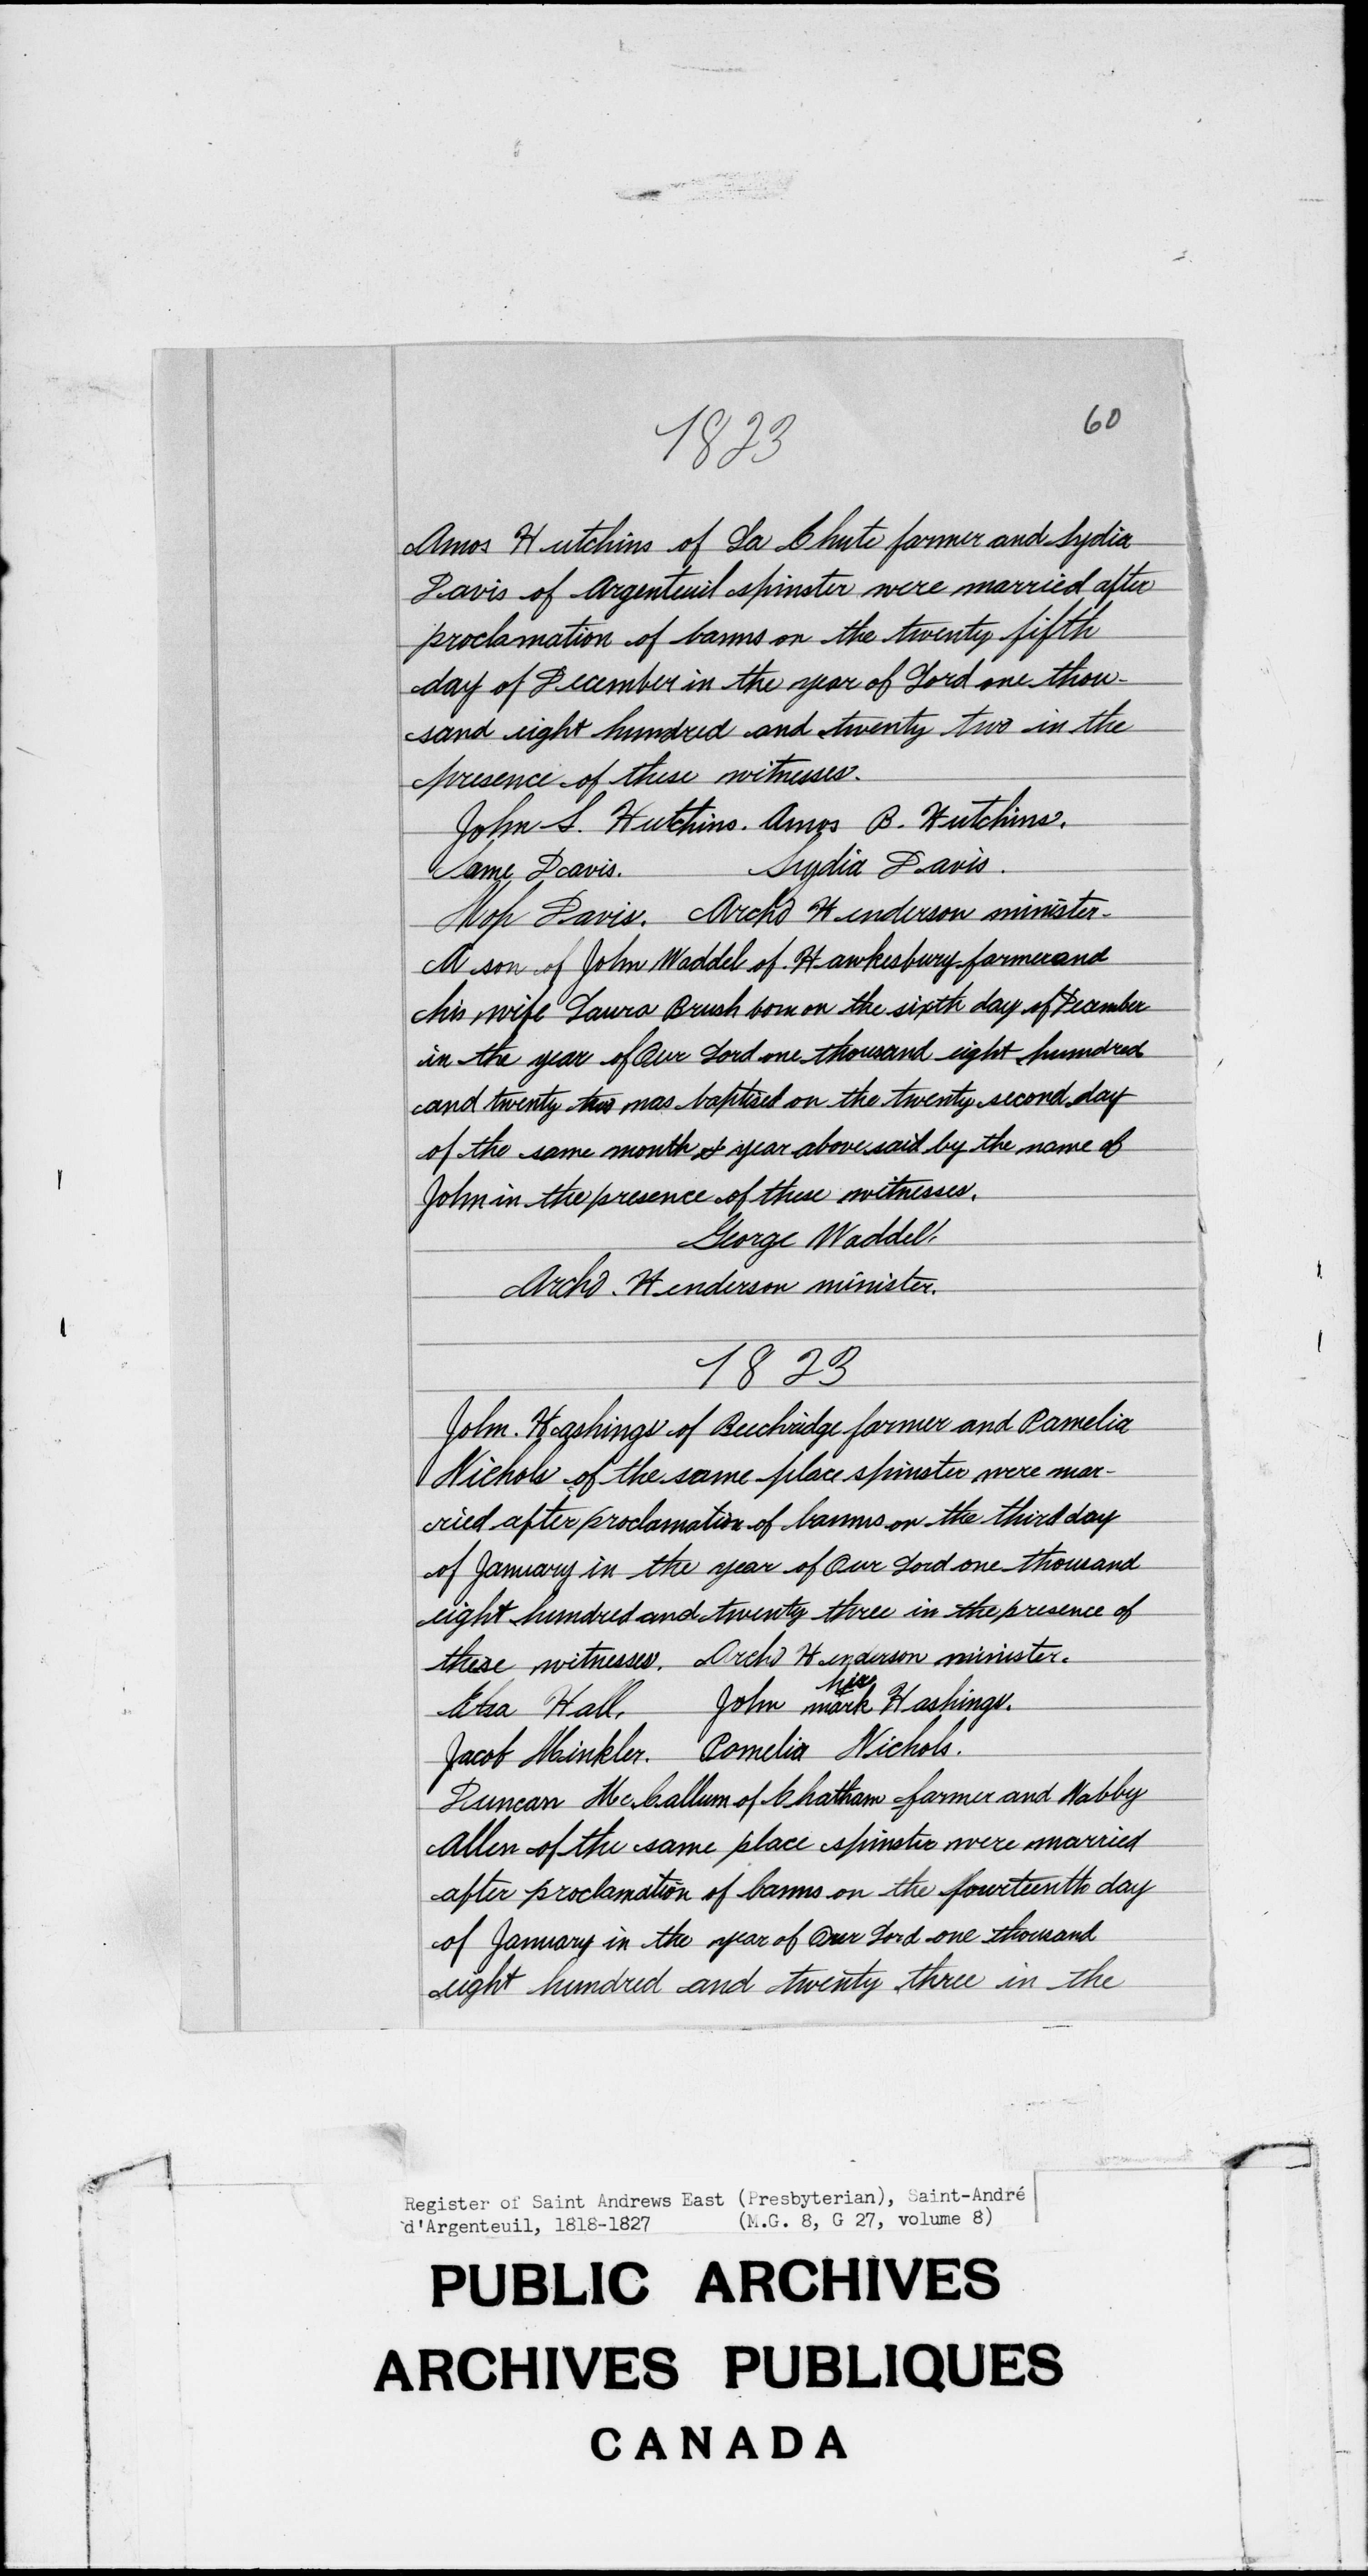 1823
60
Amos Hutchins of La Chute farmer and Lydia
Davis of Argenteuil spinster were married after
proclamation of banns on the twenty fifth
day of December in the year of Lord one thou-
sand eight hundred and twenty two in the
presence of these witnesses.
John S. Hutchins. Amos B. Hutchins.
Same Davis. Lydia Davis.
Davis. Archd Henderson minister.
A son of John Waddel of Hawkesbury farmer and
his wife Laura Brush born on the sixth day of December
in the year of Our Lord one thousand eight hundred
and twenty two was baptised on the twenty second day
of the same month & year above said by the name of
John in the presence of these witnesses.
George Waddel.
Archd. Henderson minister.
1823
John. Hashings of Beechridge farmer and Pamelia
Nichols of the same place spinster were mar-
ried after proclamation of banns on the third day
of January in the year of Our Lord one thousand
eight hundred and twenty three in the presence of
these witnesses. Archd Henderson minister.
his
Hall. John mark Hashings.
Jacob Hinkler. Pamelia Nichols.
Duncan McCallum of Chatham farmer and Nabby
Allen of the same place spinster were married
after proclamation of banns on the fourteenth day
of January in the year of Our Lord one thousand
eight hundred and twenty three in the
Register of Saint Andrews East (Presbyterian), Saint-André
d'Argenteuil, 1818-1827 (M.G. 8, G 27, volume 8)
PUBLIC ARCHIVES
ARCHIVES PUBLIQUES
CANADA